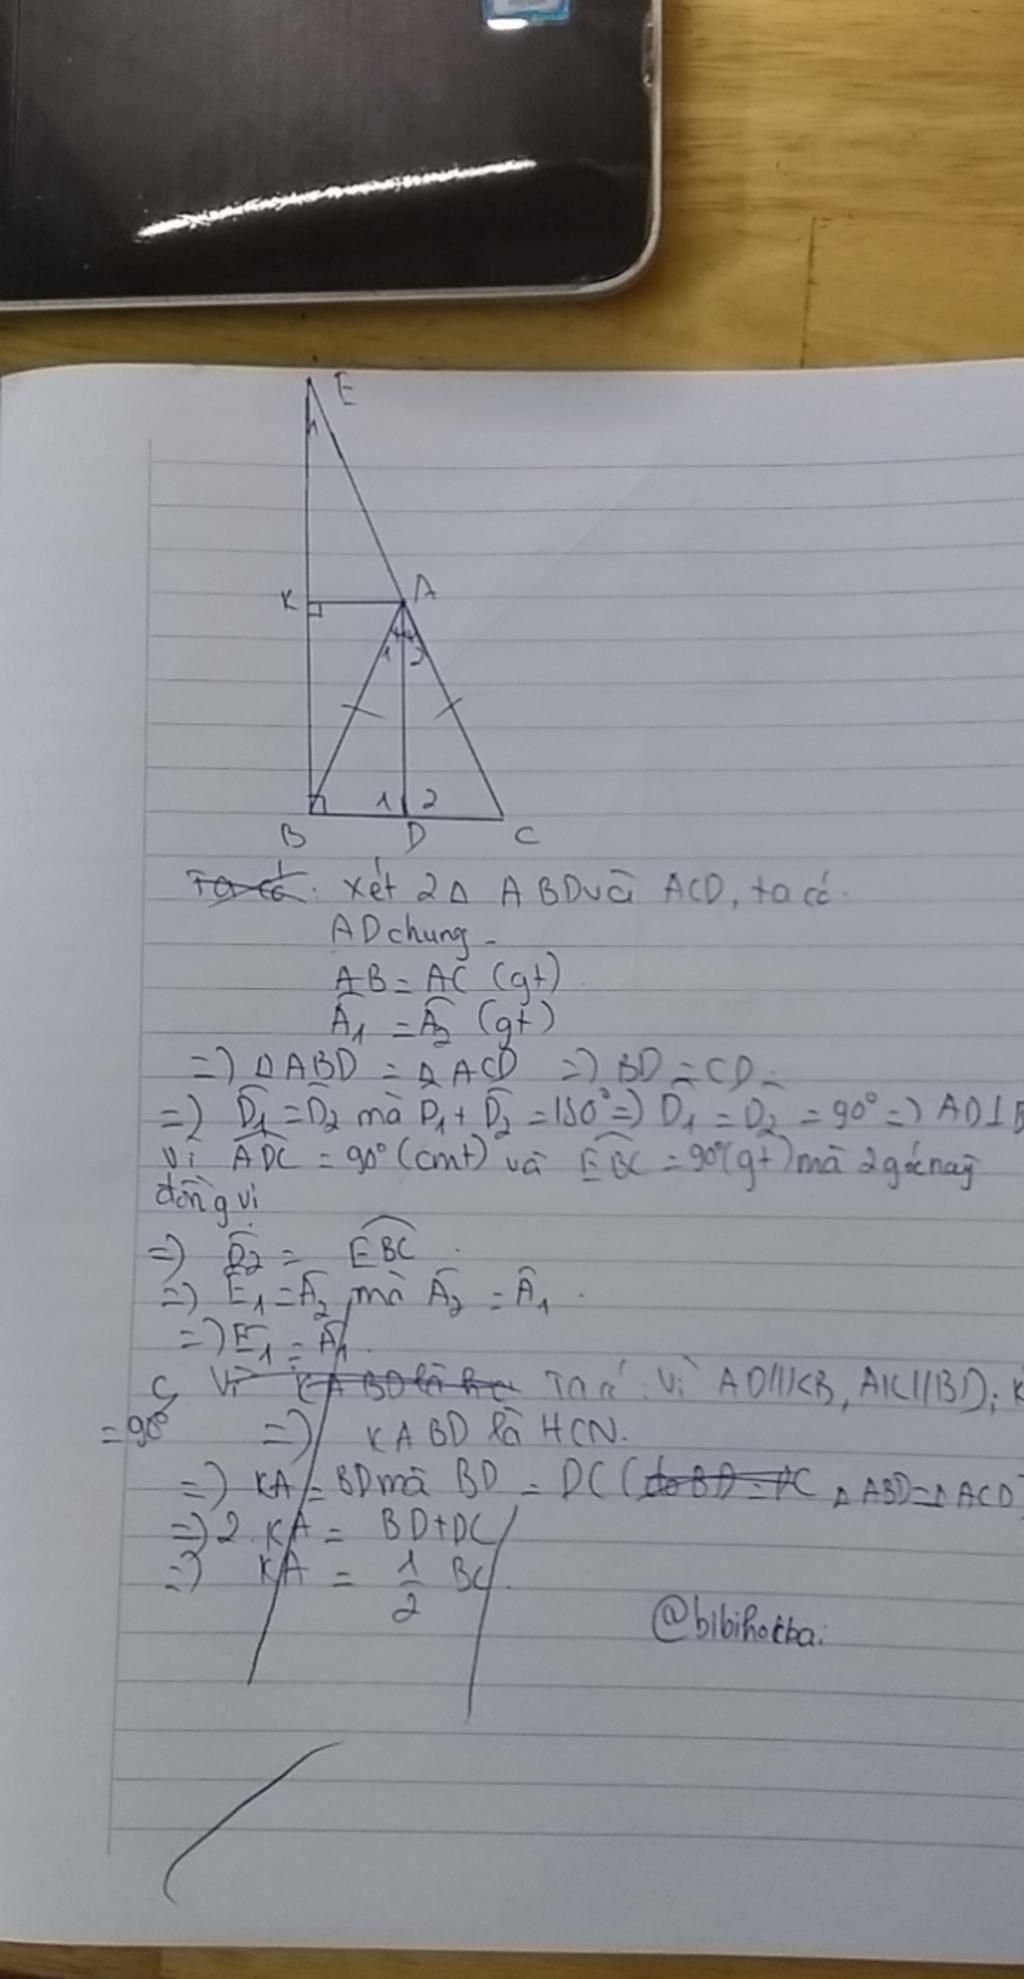 E
1
K
A
1 2
1 2
B D C
Ta có: xét 2Δ ABD và ACD, ta có.
AD chung -
AB = AC (gt)
Â1 = Â2 (gt)
=) Δ ABD = Δ ACD =) BD = CD =
=) D̂1 = D̂2 mà D̂1 + D̂2 = 180° =) D̂1 = D̂2 = 90° =) AD⊥B
Vì ADC = 90° (cmt) và EBC = 90° (gt) mà 2 góc naỳ
đồng vị
=) D̂2 = EBC
=) Ê1 = Â2 mà Â2 = Â1.
=) Ê1 = Â1.
C, Vì KABD là Ta có: Vì AD//KB, AK//BD; K
= 90° =) KABD là HCN.
=) KA = BD mà BD = DC (do BD = DC Δ ABD = Δ ACD)
=) 2. KA = BD + DC
=) KA = 1/2 BC.
@bibihocbai